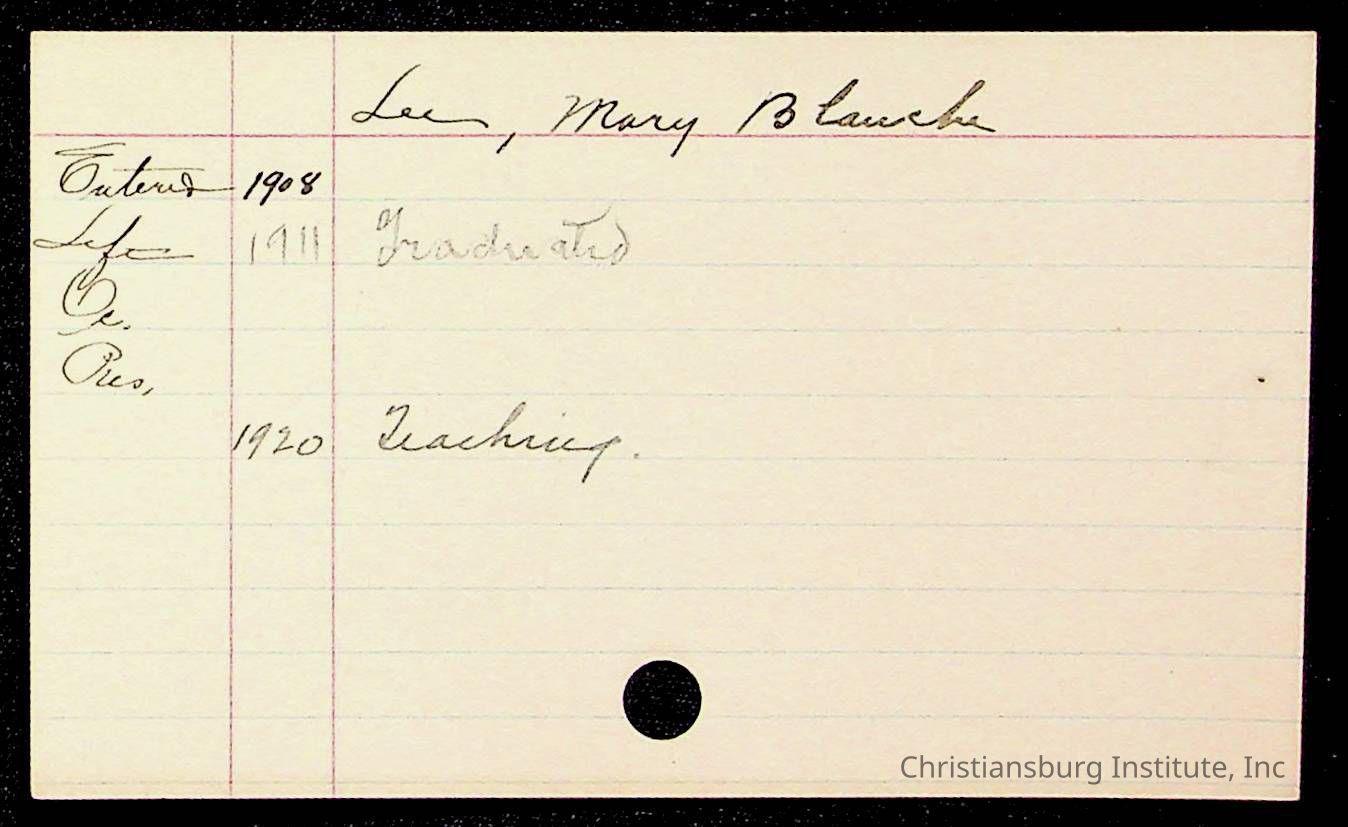 Lee, Mary Blanche
Entered 1908
Left 1911 Graduated
Oc.
Pres,
1920 Teaching.
Christiansburg Institute, Inc